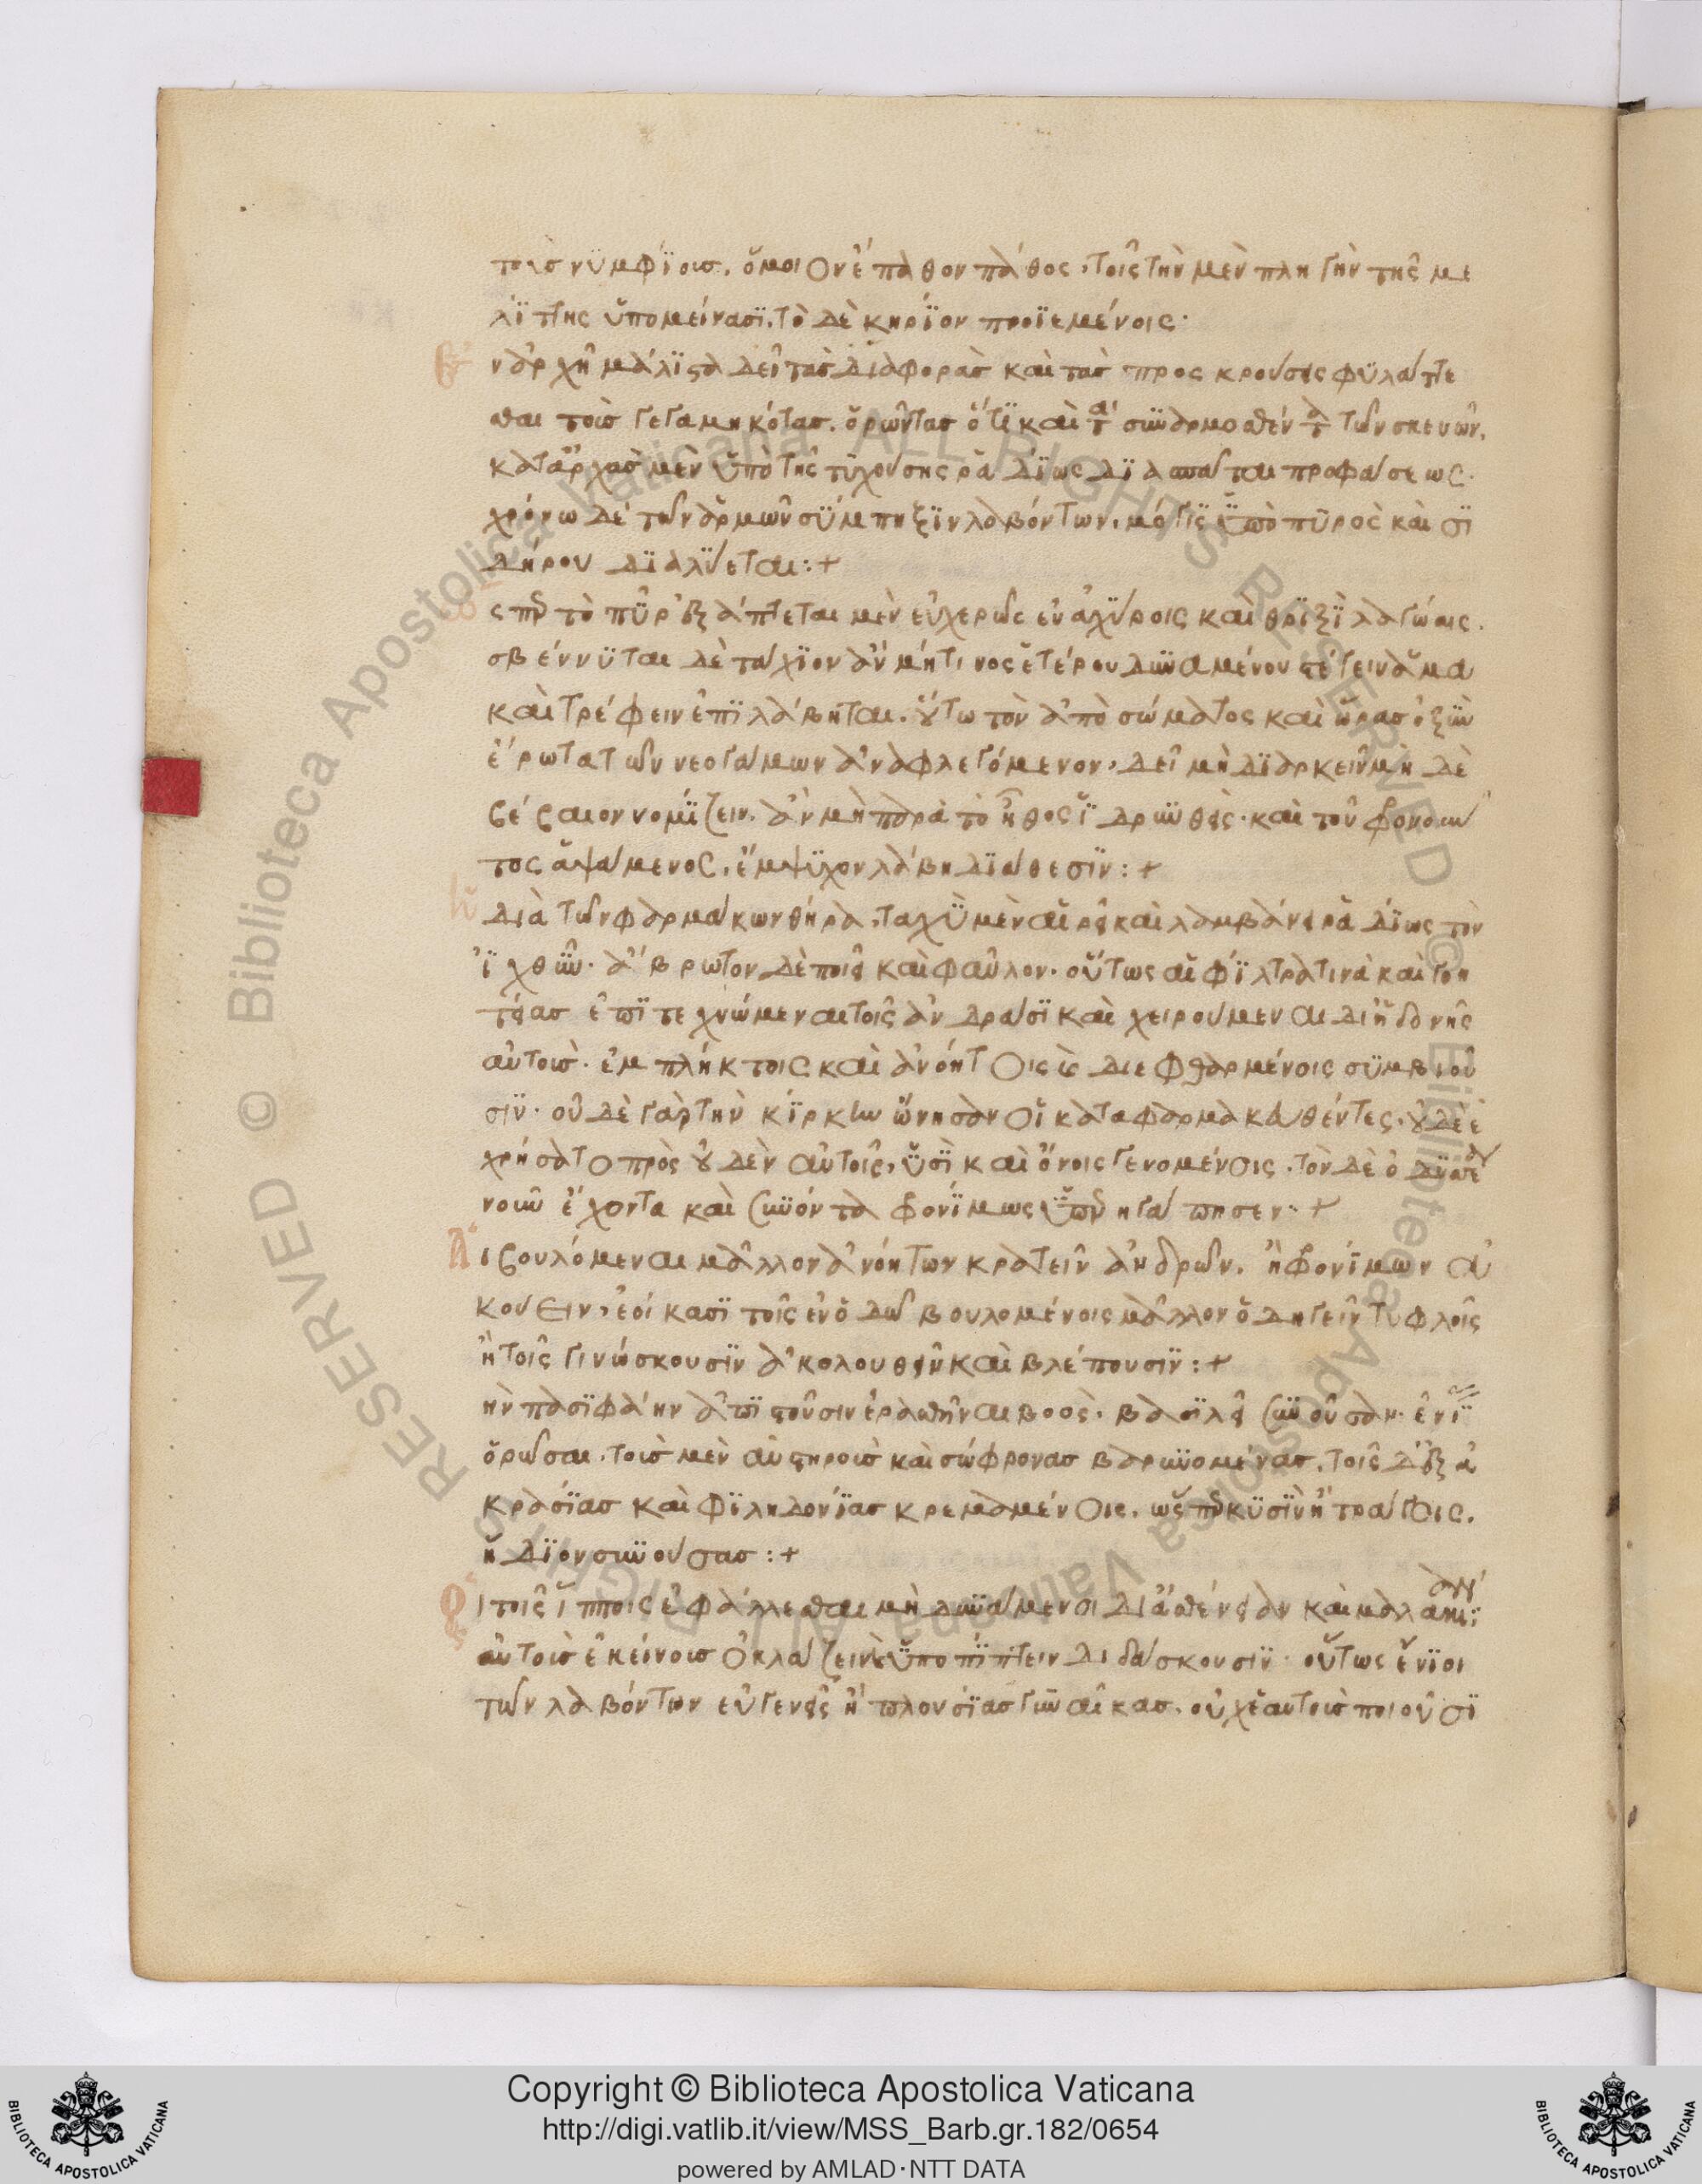 τοὺς νυμφίους, ὅμοιον ἔπαθον πάθος, τοῖς τὴν μὲν πληγὴν τῆς με
λίττης ὑπομείνασι, τὸ δὲ κηρίον προϊεμένοις.
Ἐν ἀρχῇ μάλιστα δεῖ τὰς διαφορὰς καὶ τὰς προσκρούσεις φυλάττε
σθαι τοὺς γεγαμηκότας. ὁρῶντας ὅτι καὶ τὰ συναρμοσθέντα τῶν σκευῶν,
κατ' ἀρχὰς μὲν ὑπὸ τῆς τυχούσης ῥαδίως διασπᾶται προφάσεως.
χρόνω δὲ τῶν ἁρμῶν σύμπηξιν λαβόντων, μόγις ὑπὸ πυρὸς καὶ σι
δήρου διαλύεται:+
ὥσπερ τὸ πῦρ ἐξάπτεται μὲν εὐχερῶς ἐν ἀχύροις καὶ θριξὶ λαγώαις.
σβέννυται δὲ τάχιον ἂν μή τινος ἑτέρου δυναμένου στέγειν ἅμα
καὶ τρέφειν ἐπιλάβηται. οὕτω τὸν ἀπὸ σώματος καὶ ὥρας ὀξὺν
ἔρωτα τῶν νεογάμων ἀναφλεγόμενον, δεῖ μὴ διαρκεῖν μὴ δὲ
βέβαιον νομίζειν, ἂν μὴ παρὰ τὸ ἦθος ἱδρυνθεὶς. καὶ τοῦ φρονοῦν
τος ἁψάμενος, ἔμψυχον λάβη διάθεσιν:+
Ἡ διὰ τῶν φαρμάκων θήρα, ταχὺ μὲν αἱρεῖ καὶ λαμβάνει ῥαδίως τὸν
ἰχθῦν. ἄβρωτον δὲ ποιεῖ καὶ φαῦλον. οὕτως αἱ φίλτρα τινὰ καὶ γοη
τείας ἐπιτεχνώμεναι τοῖς ἀνδράσι καὶ χειρούμεναι δι' ἡδονῆς
αὐτοὺς. ἐμπλήκτοις καὶ ἀνοήτοις καὶ διεφθαρμένοις συμβιοῦ
σιν. οὐδὲ γὰρ τὴν κίρκην ὤνησαν οἱ καταφαρμακευθέντες. οὐδὲ ἐ
χρήσατο πρὸς οὐδὲν αὐτοῖς, ὑσὶ καὶ ὄνοις γενομένοις. τὸν δὲ ὀδυσσέα
νοῦν ἔχοντα καὶ συνόντα φρονίμως ὑπερηγάπησεν:+
Αἱ βουλόμεναι μᾶλλον ἀνοήτων κρατεῖν ἀνδρῶν, ἢ φρονίμων ἀ
κούειν, ἐοίκασι τοῖς ἐν ὁδῶ βουλομένοις μᾶλλον ὁδηγεῖν τυφλοὺς
ἢ τοῖς γινώσκουσιν ἀκολουθεῖν καὶ βλέπουσιν:+
τὴν πασιφάην ἀπιστοῦσιν ἐρασθῆναι βοὸς, βασιλεῖ συνοῦσαν. ἐνίας
ὁρῶσαι, τοὺς μὲν αὐστηροὺς καὶ σώφρονας βαρυνομένας, τοῖς δ' ἐξ ἀ
κρασίας καὶ φιληδονίας κρεμαμένοις, ὥσπερ κυσὶν ἢ τράγοις,
ἥδιον συνούσας:+
Οἱ τοῖς ἵπποις ἐφάλλεσθαι μὴ δυνάμενοι δι' ἀσθένειαν καὶ μαλακίαν
αὐτοὺς ἐκείνους ὀκλάζειν καὶ ὑποπίπτειν διδάσκουσιν. οὕτως ἔνιοι
τῶν λαβόντων εὐγενεῖς ἢ πλουσίας γυναῖκας, οὐχ ἑαυτοὺς ποιοῦσι
Copyright © Biblioteca Apostolica Vaticana
http://digi.vatlib.it/view/MSS_Barb.gr.182/0654
powered by AMLAD·NTT DATA